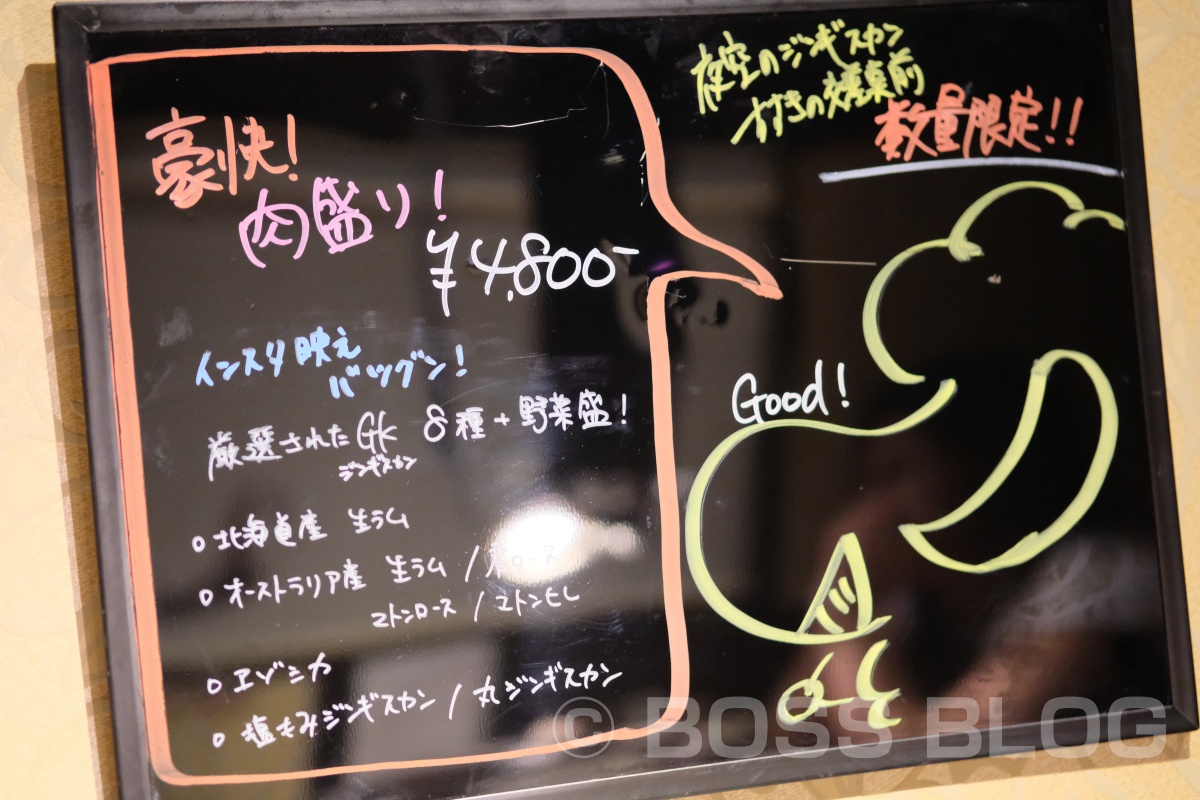 夜空のジンギスカン
すすきの交差点前
数量限定!!
豪快!
肉盛り!
¥4,800-
インスタ映え
バツグン!
厳選されたGK 8種+野菜盛!
ジンギスカン
○北海道産 生ラム
○オーストラリア産 生ラム /
マトンロース / マトンヒレ
○エゾシカ
○塩もみジンギスカン / 丸ジンギスカン
Good!
© BOSS BLOG